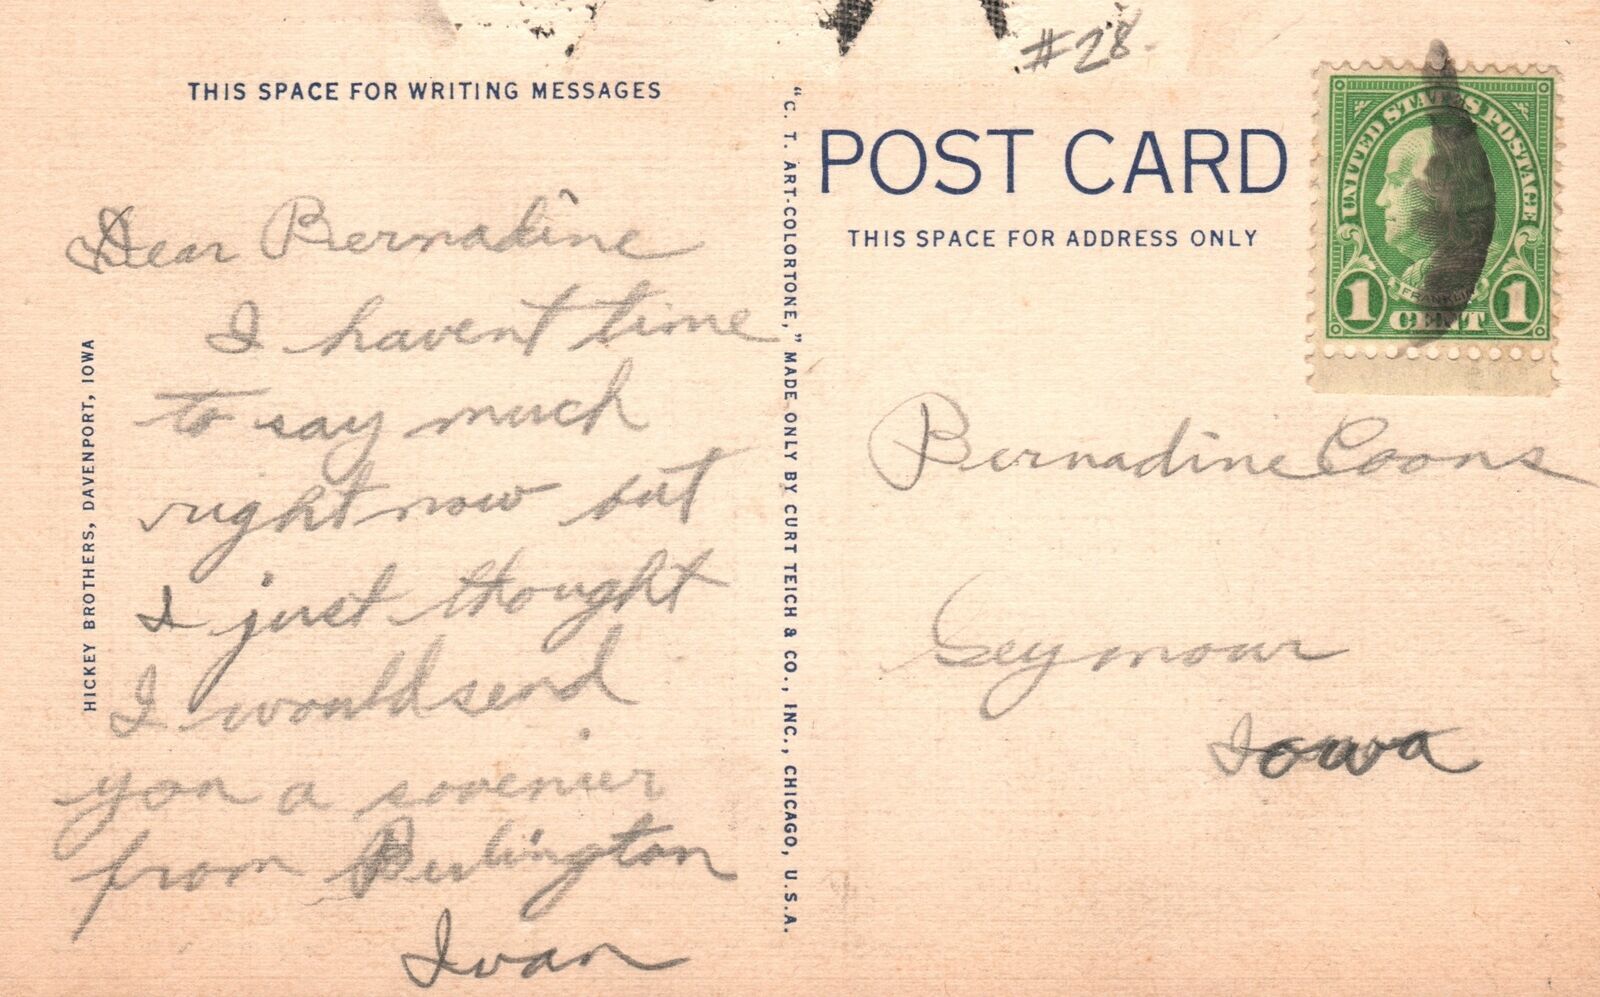 #28
THIS SPACE FOR WRITING MESSAGES
Dear Bernadine
I havent time
to say much
right now but
I just thought
I would send
you a sovenier
from Burlington
Ivan
HICKEY BROTHERS, DAVENPORT, IOWA
"C. T. ART-COLORTONE," MADE ONLY BY CURT TEICH & CO., INC., CHICAGO, U.S.A.
POST CARD
THIS SPACE FOR ADDRESS ONLY
UNITED STATES POSTAGE
FRANKLIN
1 CENT 1
Bernadine Coons
Seymour
Iowa